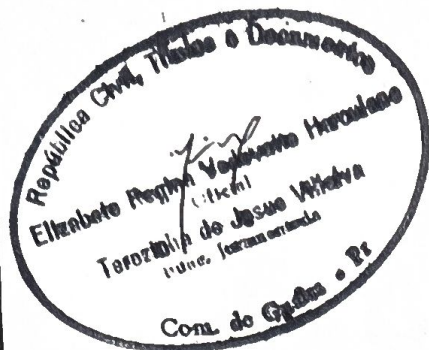 República Civil, Titulos e Documentos
Elizabete Regina Vedovatto Herculano
Oficial
Terezinha de Jesus Villalva
Func. Juramentada
Com. de